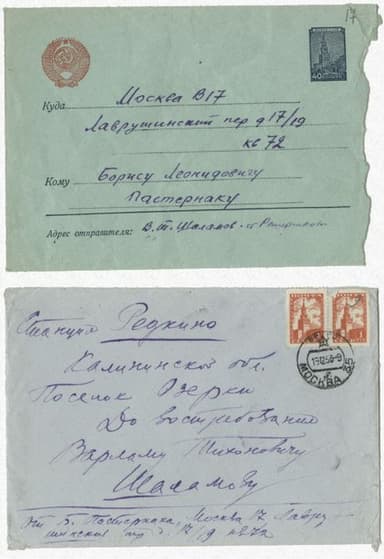 17
40
Куда Москва В17
Лаврушинский пер д 17/19
кв 72
Кому Борису Леонидовичу
Пастернаку
Адрес отправителя: В. Т. Шаламов
МОСКВА
Станция Редкино
Калининской обл.
Поселок Озерки
До востребования
Варламу Тихоновичу
Шаламову
От Б. Пастернака, Москва 17 Лавру-
шинский пер д 17/19 кв 72